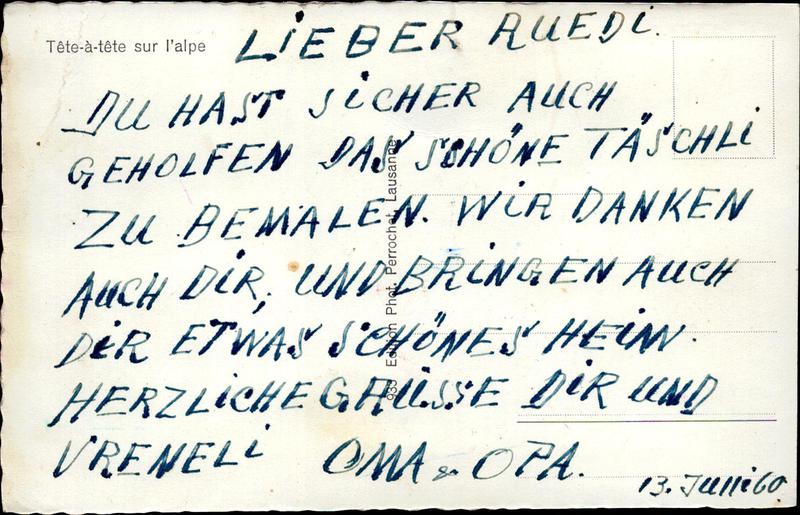 Tête-à-tête sur l'alpe
LIEBER RUEDI.
DU HAST SICHER AUCH
GEHOLFEN DAS SCHÖNE TÄSCHLI
ZU BEMALEN. WIR DANKEN
AUCH DIR, UND BRINGEN AUCH
DIR ETWAS SCHÖNES HEIM.
HERZLICHE GRÜSSE DIR UND
VRENELI OMA & OPA.
13. Juni 60
Edition Phot. Perrochet, Lausanne